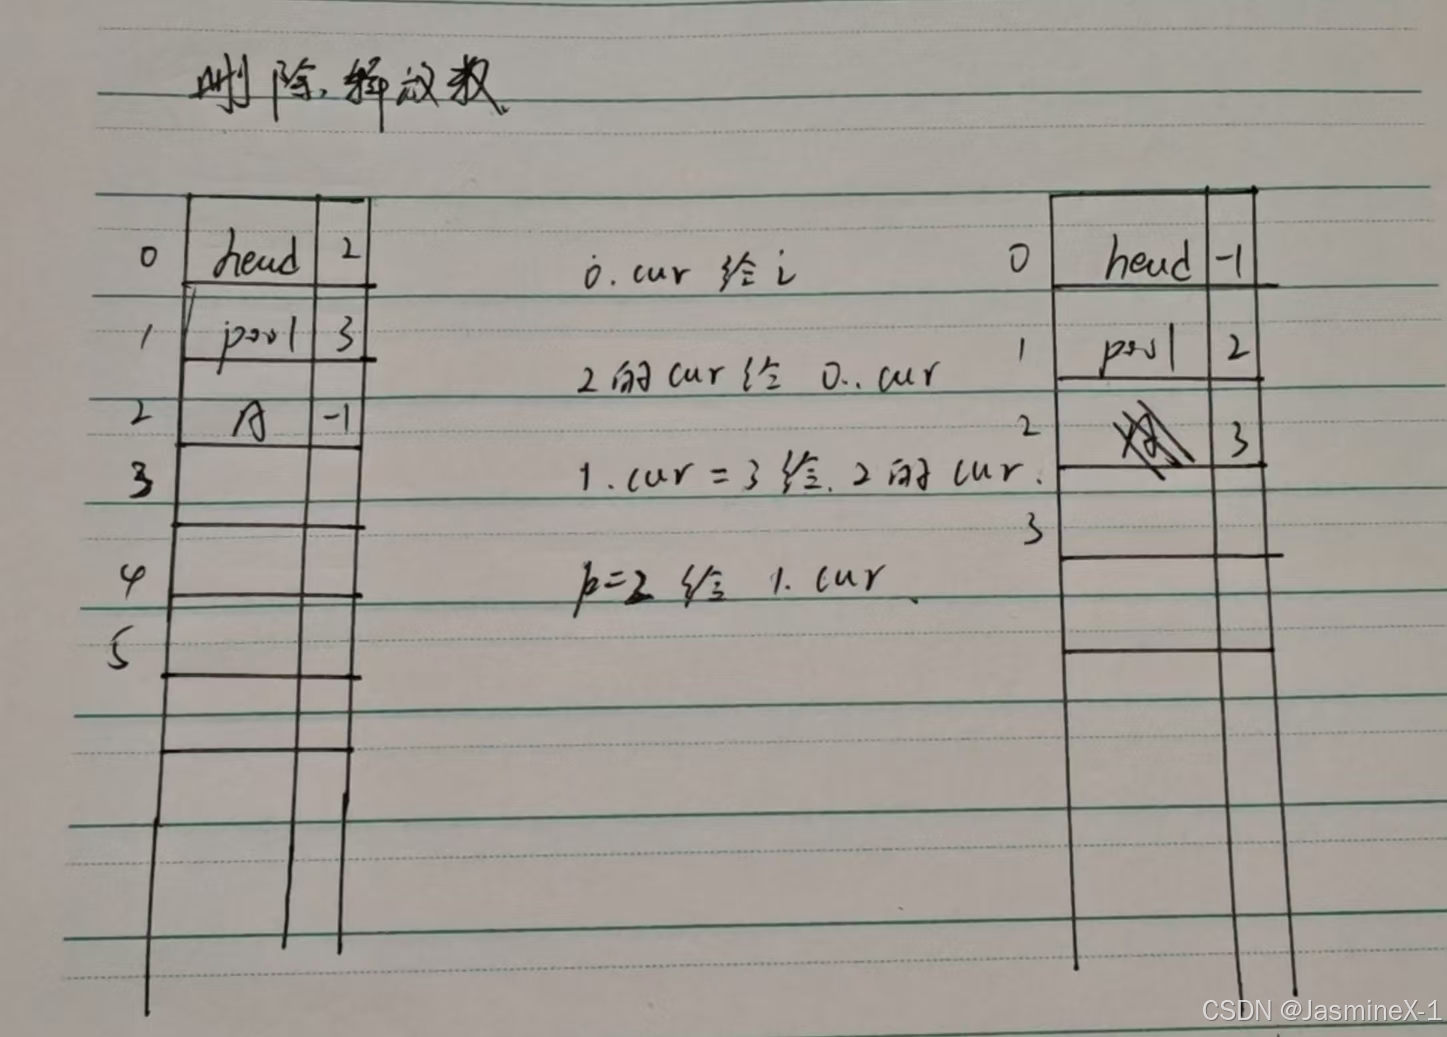 删除.释放数
0 head 2
1 pool 3
2 A -1
3
4
5
0.cur 给 i
2的cur 给 0..cur
1.cur=3给.2的cur.
p=2 给 1.cur
0 head -1
1 pool 2
2 3
3
CSDN @JasmineX-1